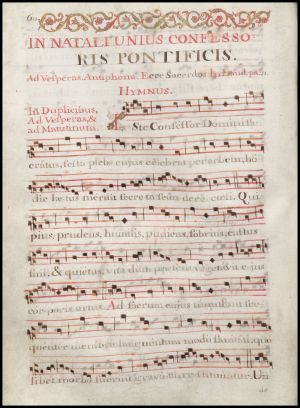 60
IN NATALI UNIUS CONFESSO-
RIS PONTIFICIS.
Ad Vesperas. Antiphona Ecce Sacerdos
HYMNUS.
In Duplicibus,
Ad Vesperas, &
ad Matutinum. Iste Confessor Domini
festa plebs cujus celebrat per orbem, ho
die lætus meruit secreta Qui
pius, prudens, humilis, pudicus, sobrius, castus
& quietus, vita dum
corporis artus. Ad sacrum cujus tumulum fre-
quenter membra languentum modo quo
libet morbo fuerint gravata restituuntur. Un